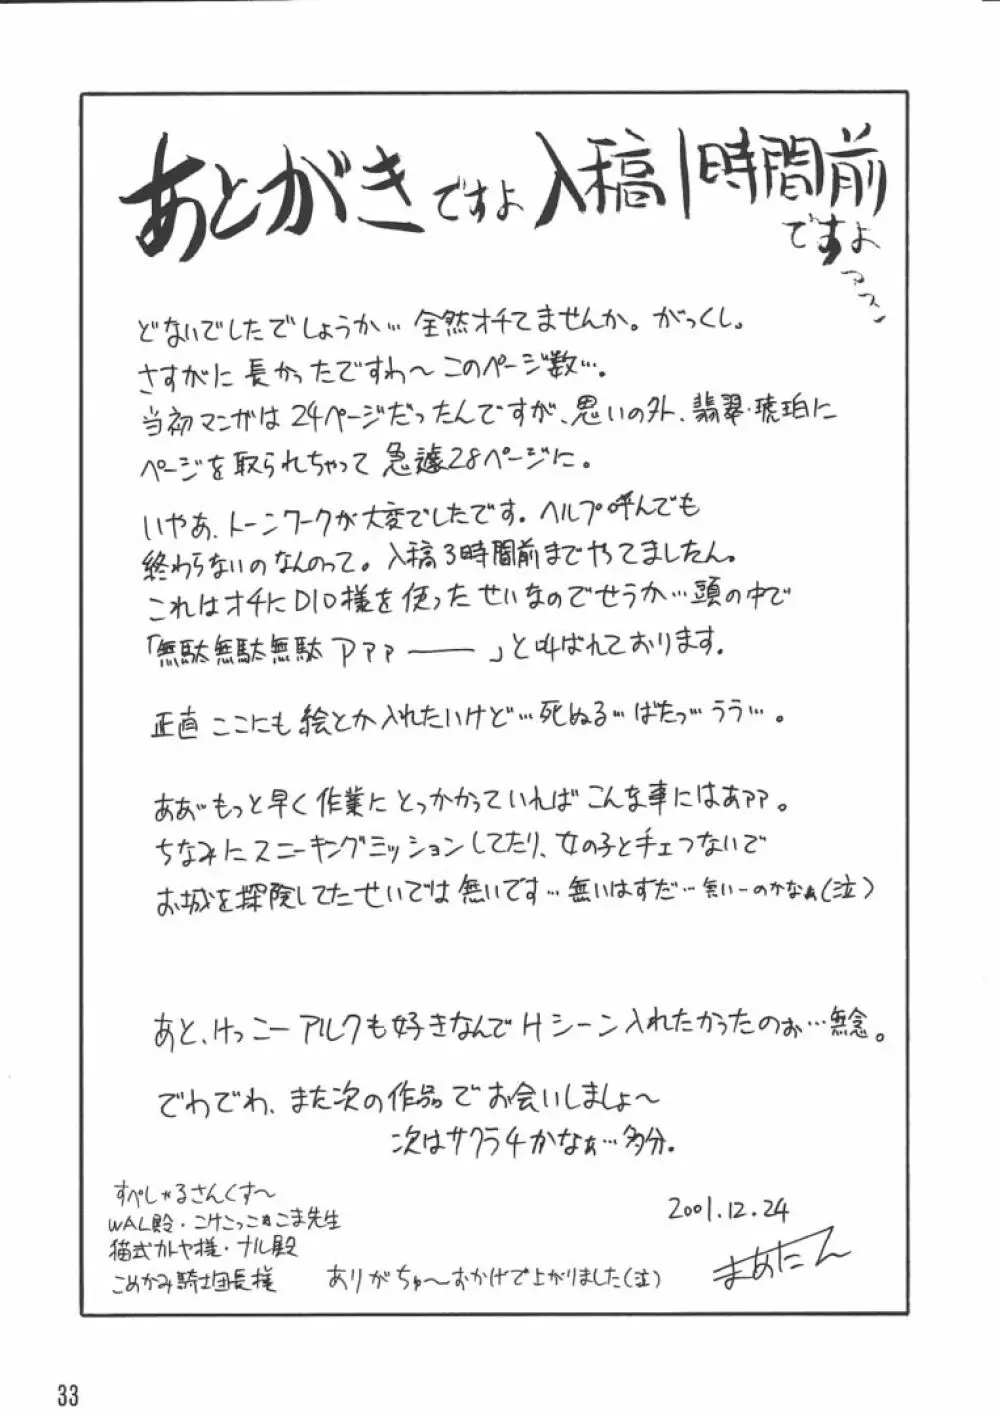 あとがきですよ 入稿1時間前
ですよ
どないでしたでしょうか… 全然オチてませんか。がっくし。
さすがに 長かったですわ〜 このページ数…。
当初マンガは 24ページだったんですが、思いの外、翡翠・琥珀に
ページを取られちゃって 急遽28ページに。
いやあ、トーンワークが大変でしたです。ヘルプ呼んでも
終わらないのなんのって。入稿3時間前までやってましたん。
これはオチにDIO様を使ったせいなのでせうか…頭の中で
「無駄無駄無駄アァァ───」と叫ばれております。
正直 ここにも 絵とか入れたいけど…死ぬる…ばたっ…うう…。
ああ゛もっと早く作業に とっかかっていれば こんな事にはあァァ。
ちなみに スニーキングミッションしてたり、女の子と手ェつないで
お城を探険してたせいでは無いです…無いはずだ…無いーのかなぁ(泣)
あと、けっこーアルクも好きなんで Hシーン入れたかったのぉ…無念。
でわでわ、また次の作品で お会いしましょ〜
次はサクラ4かなぁ…多分。
すぺしゃるさんくす〜
WAL殿・こけこっこぉこま先生
2001.12.24
猫式カトヤ様・ナル殿
まあたん
こめかみ騎士団長様 ありがちゅ〜おかげで上がりました(泣)
33